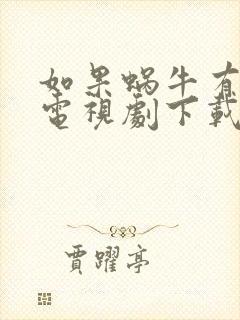 如果蝸牛有
電視劇下載
賈躍亭